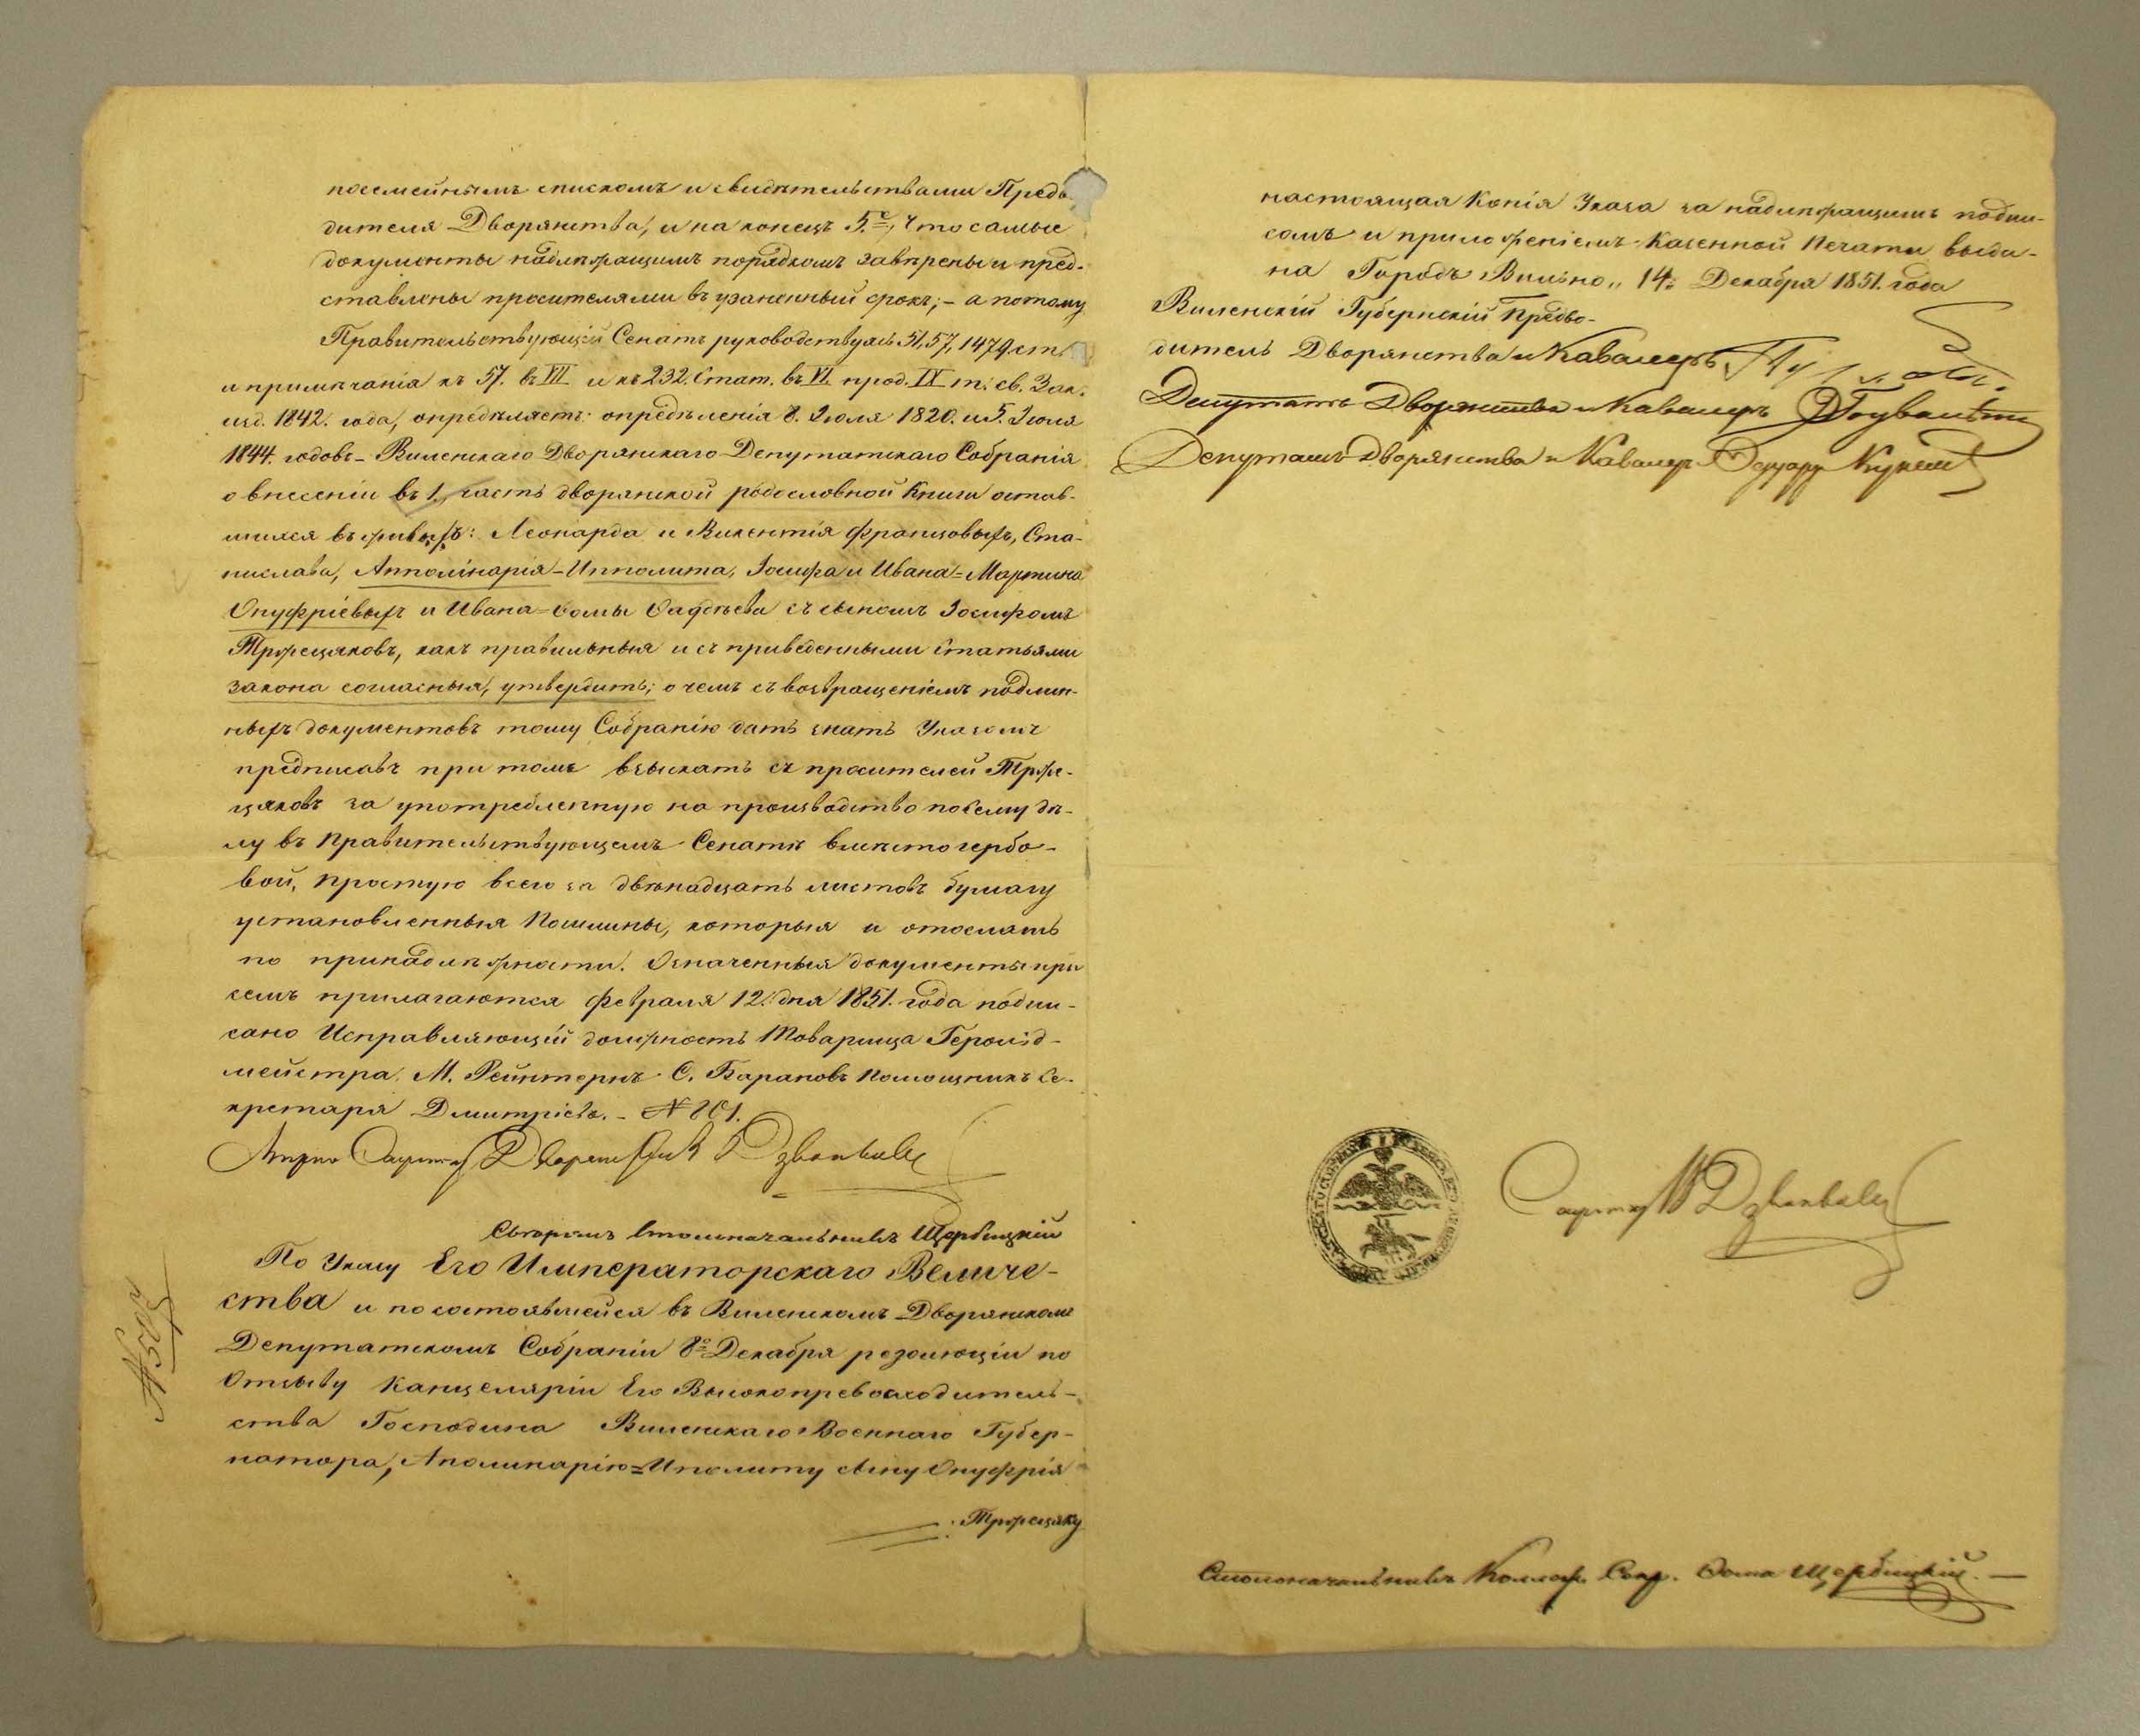 посемейнымъ спискомъ и свидѣтельствами Предво
дителя Дворянства, и на конецъ 5е, Что самые
документы надлѣжащимъ порядкомъ завѣрены и пред-
ставлены просителями въ узаненный срокъ; – а потому
Правительствующій Сенатъ руководствуясь 51, 57, 1479. ст.
и примѣчанія къ 57. въ VII и къ 232. Стат. въ VI. прод. IX т. св. Зак.
изд. 1842. года, опредѣляетъ: опредѣленія 8. Іюля 1820. и 5. Іюля
1844. годовъ – Виленскаго Дворянскаго Депутатскаго Собранія
о внесеніи въ 1. часть дворянской родословной Книги остав-
шихся въ живыхъ: Леонарда и Викентія Францовыхъ, Ста-
нислава, Апполінарія-Ипполита, Іосифа и Ивана=Мартина
Онуфріевыхъ и Ивана=Ѳомы Ѳадѣева съ сыномъ Іосифомъ
Тржецяковъ, какъ правильныя и съ приведенными Статьями
закона согласныя, утвердить; о чемъ съ возвращеніемъ подлин-
ныхъ документовъ тому Собранію дать знать Указомъ
предписавъ при томъ взыскать съ просителей Трже-
цяковъ за употребленную на производство по сему дѣ-
лу въ Правительствующемъ Сенатѣ вмѣсто гербо-
вой, простую всего за двѣнадцать листовъ бумагу
установленныя Пошлины, которыя и отослать
по принадлѣжности. Означенныя документы при
семъ прилагаются Февраля 12. дня 1851. года подпи-
сано Исправляющій должность Товарища Герольд-
мейстра М. Рейтернъ С. Барановъ Помощникъ Се-
кретаря Дмитріевъ. – № 801.
Сверялъ Столоначальникъ Щербицкій
По Указу Его Императорскаго Величе-
ства и по состоявшейся въ Виленскомъ Дворянскомъ
Депутатскомъ Собраніи 8о Декабря резолюціи по
Отзыву Канцеляріи Его Высокопревосходитель-
ства Господина Виленскаго Военнаго Губер-
натора, Аполинарію=Иполиту сыну Онуфрія
Тржецяку
настоящая Копія Указа за надлѣжащимъ подпи-
сомъ и приложеніемъ Казенной Печати выда-
на Городъ Вильно „ 14о Декабря 1851. года
Виленскій Губернскій Предво-
дитель Дворянства и Кавалеръ
Депутатъ Дворянства и Кавалеръ
Депутатъ Дворянства и Кавалеръ Эдуардъ
Столоначальникъ Коллеж. Секр. Ѳома Щербицкій. –